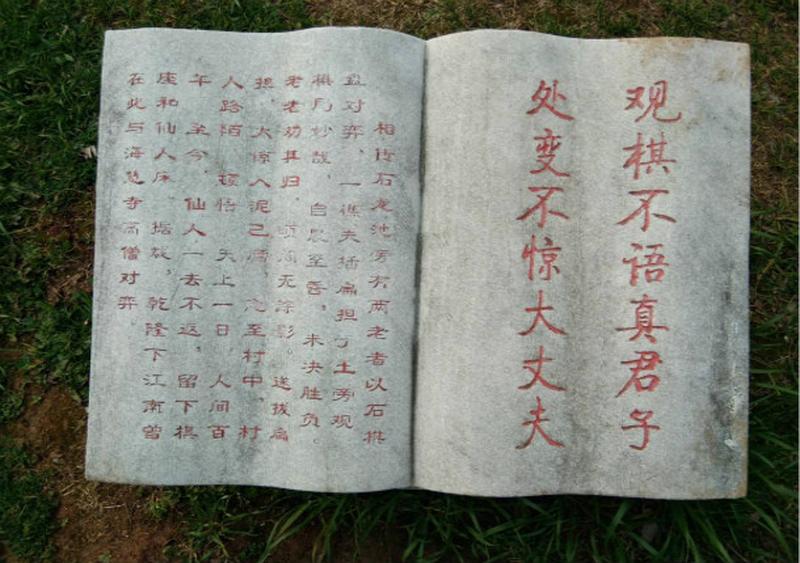 观棋不语真君子
处变不惊大丈夫
相传石龙池旁有两老者以石棋
盘对弈，一樵夫插扁担于土旁观
棋局妙哉，自晨至昏，未决胜负。
老者劝其归，瞬间无踪影。遂拔扁
担，大惊入泥已腐，急至村中，村
人路陌，顿悟天上一日，人间百
年至今，仙人一去不返，留下棋
座和仙人床。据载，乾隆下江南曾
在此与海慧寺高僧对弈。